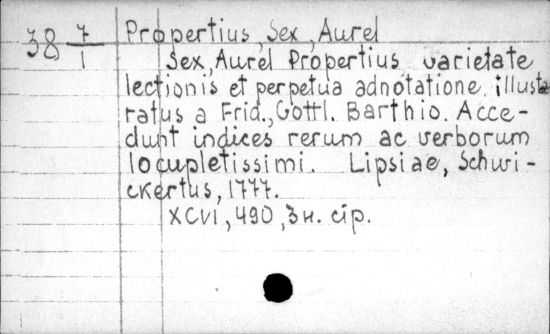 38 7/1
Propertius, Sex, Aurel
Sex, Aurel Propertius varietate
lectionis et perpetua adnotatione illust-
ratus a Frid., Gottl. Barthio. Acce-
dunt indices rerum ac verborum
locupletissimi. Lipsiae, Schwi-
ckertus, 1777.
XCVI, 490, 3 н. стр.